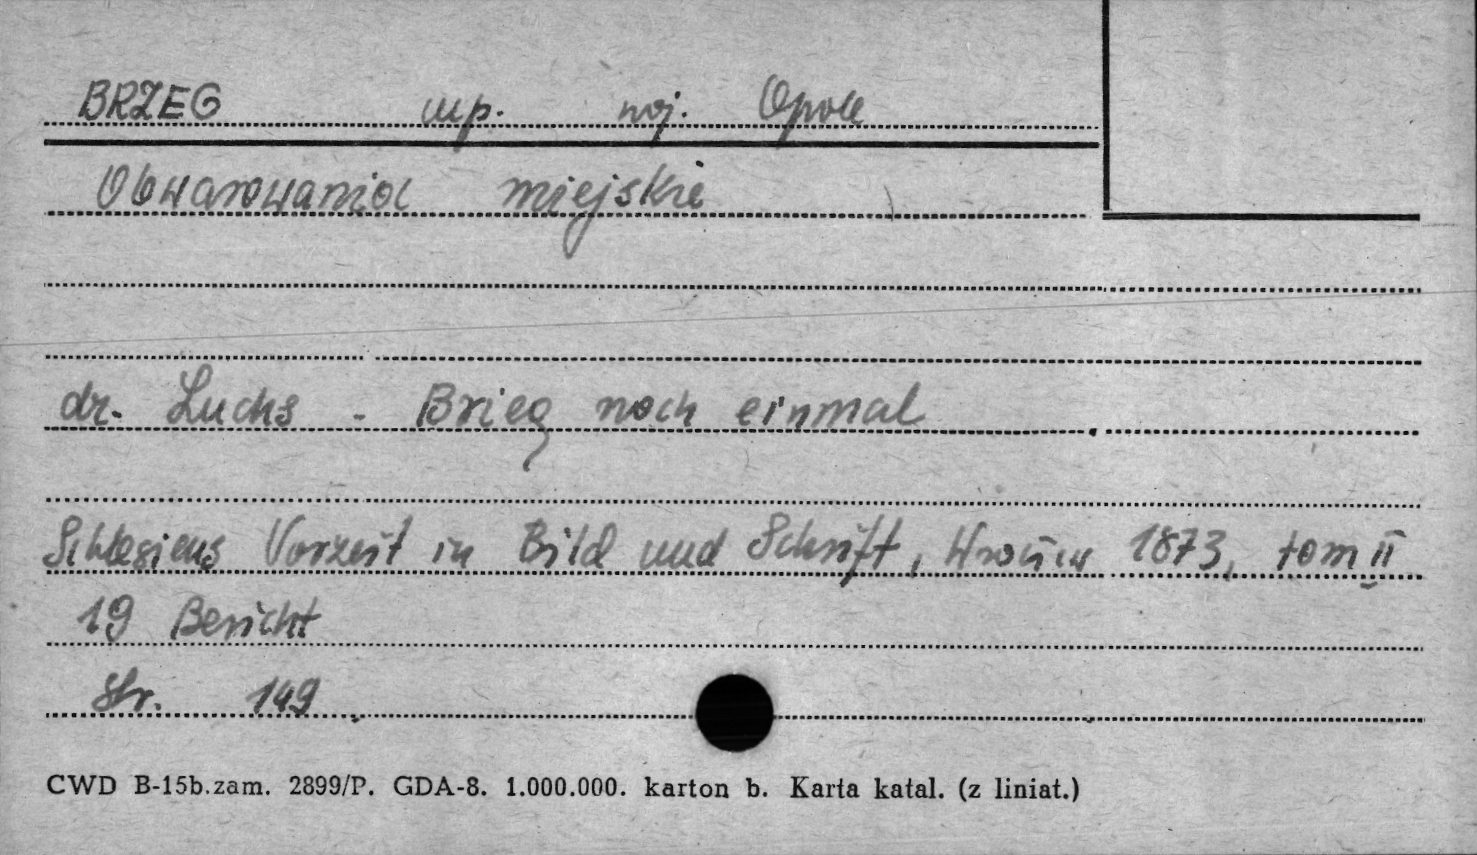 BRZEG mp. woj. Opole
Obwarowania miejskie
dr. Luchs - Brieg noch einmal
Schlesiens Vorzeit in Bild und Schrift, Wrocław 1873, tom II
19 Bericht
Str. 149
CWD B-15b.zam. 2899/P. GDA-8. 1.000.000. karton b. Karta katal. (z liniat.)